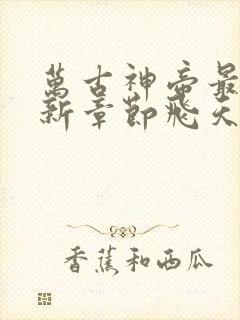 萬古神帝最
新章節飛天
香蕉和西瓜